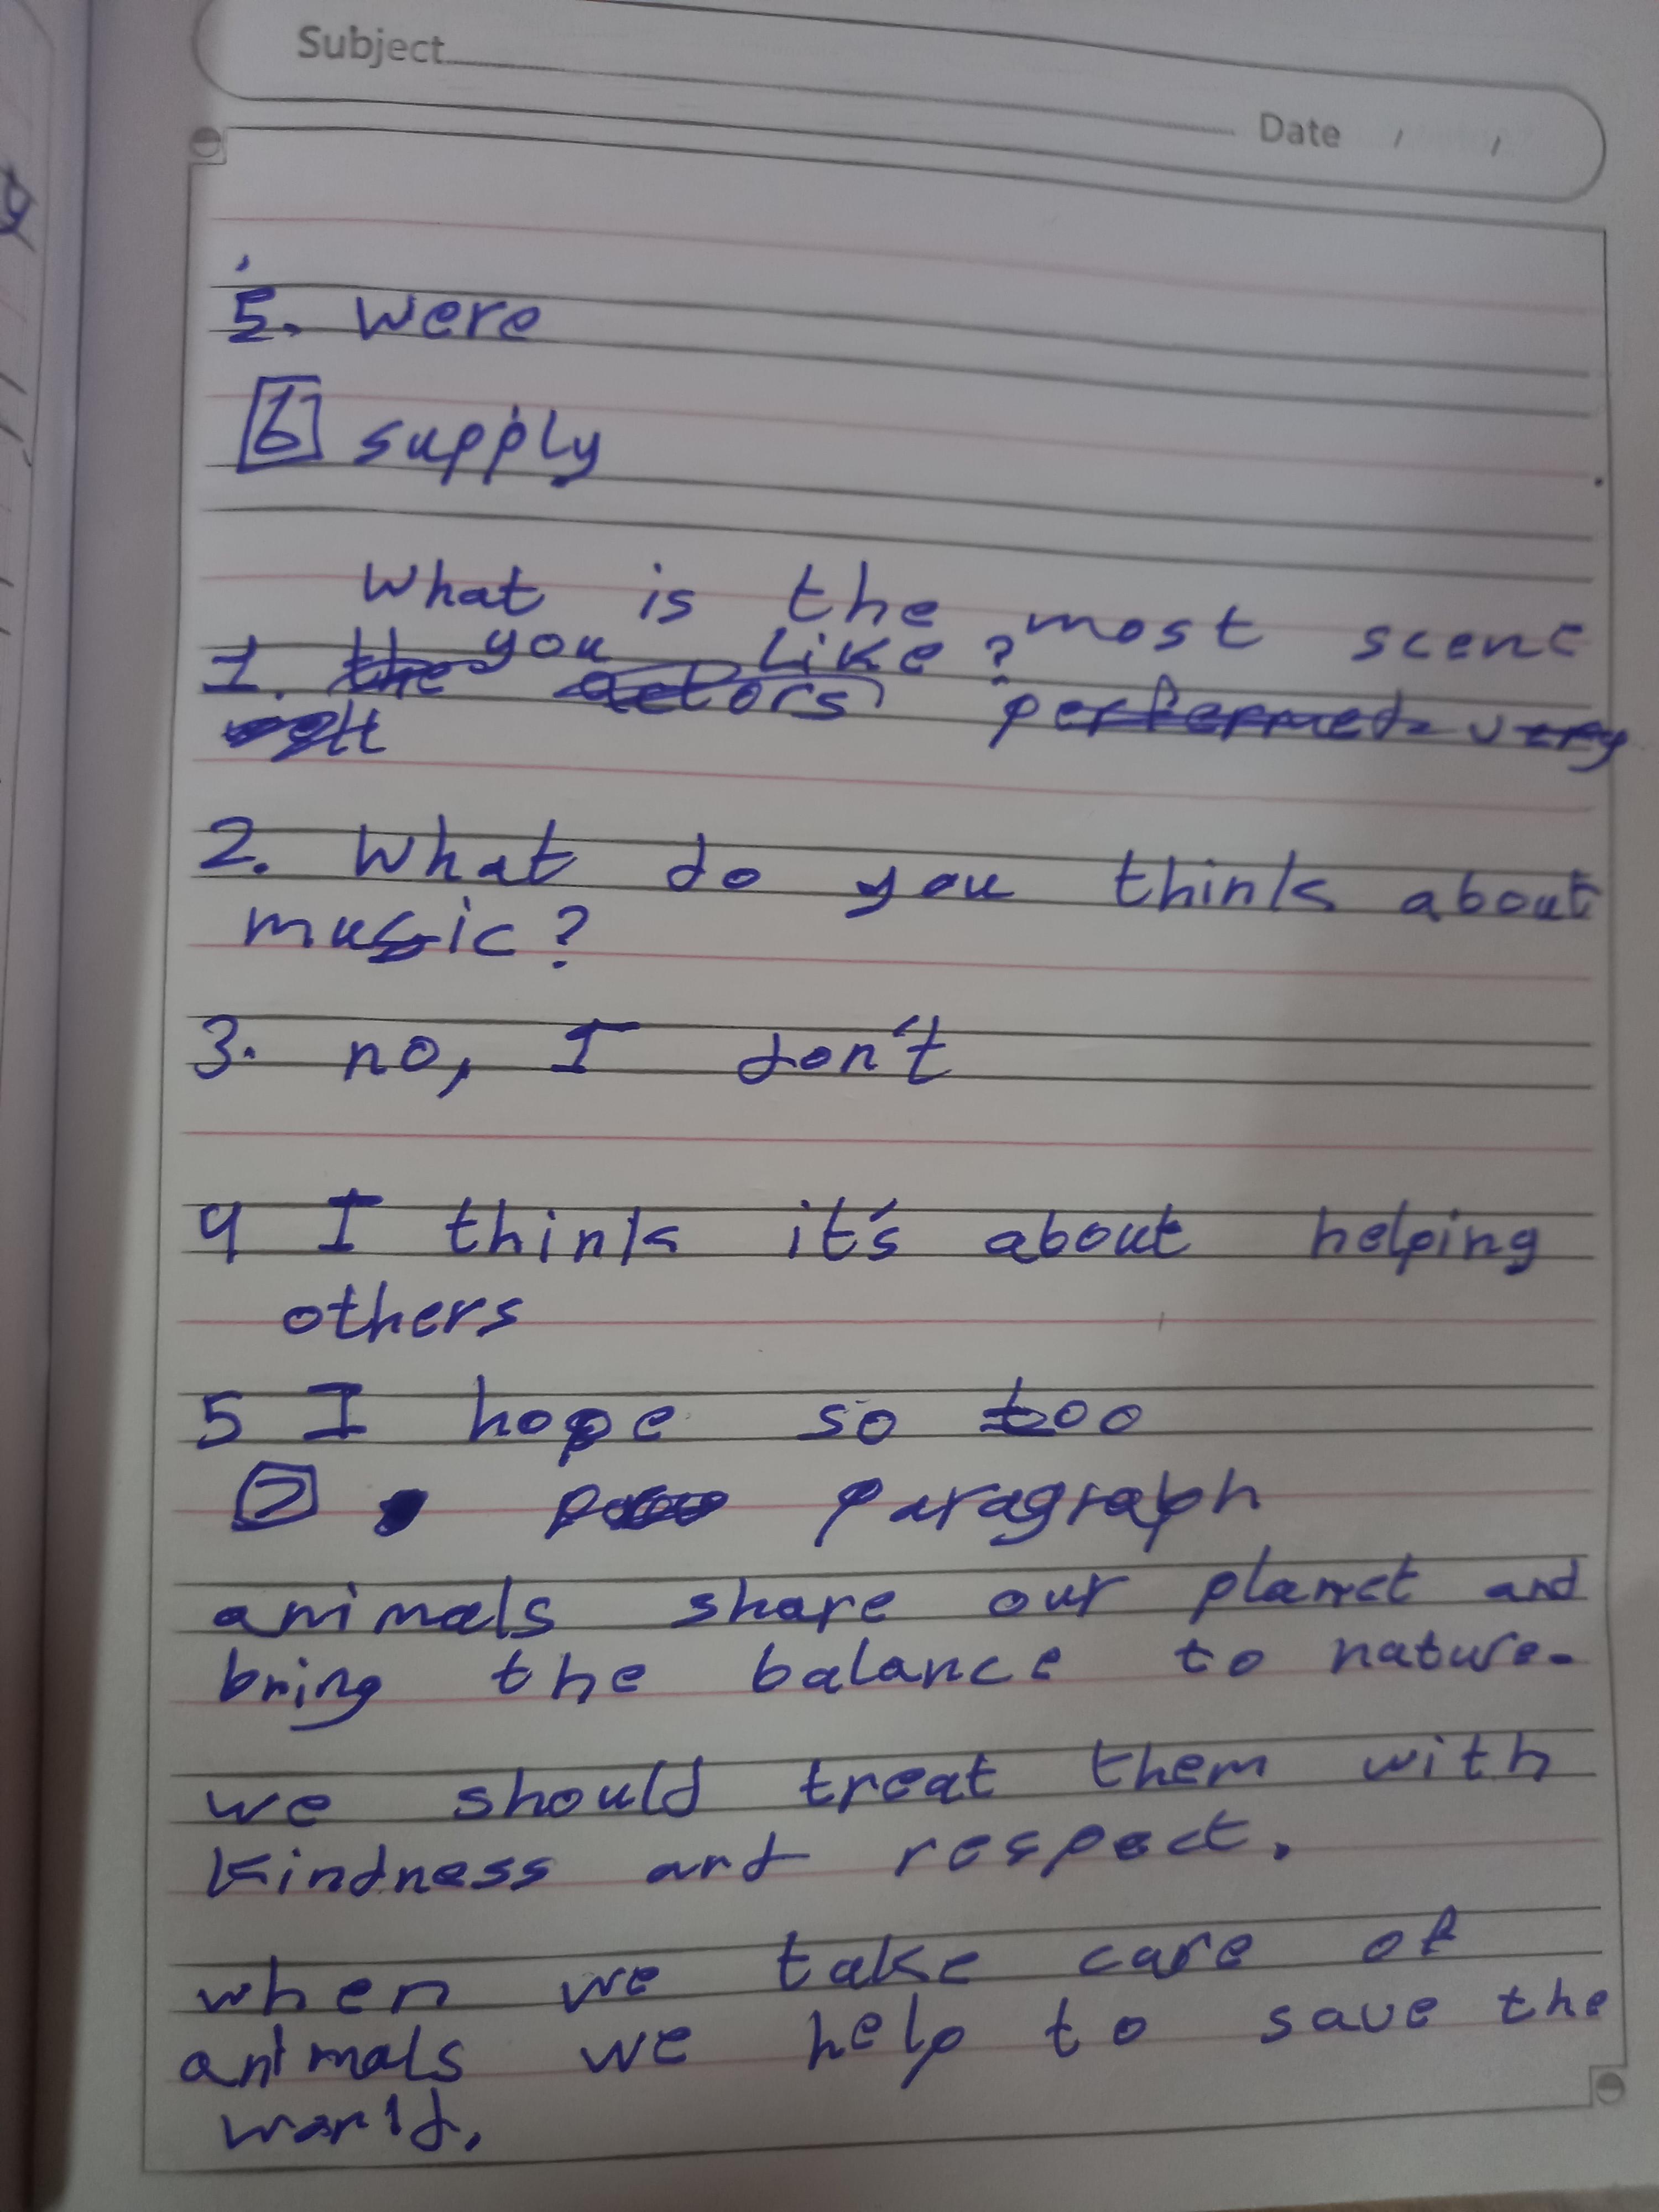 Subject
Date / /
5. were
6 supply
What is the most scene
you like?
1. the actors performed very
2. What do you think about
music?
3. no, I don't
4 I think it's about helping
others
5 I hope so too
7 paragraph
animals share our planet and
bring the balance to nature.
we should treat them with
kindness and respect.
when we take care of
animals we help to save the
world.